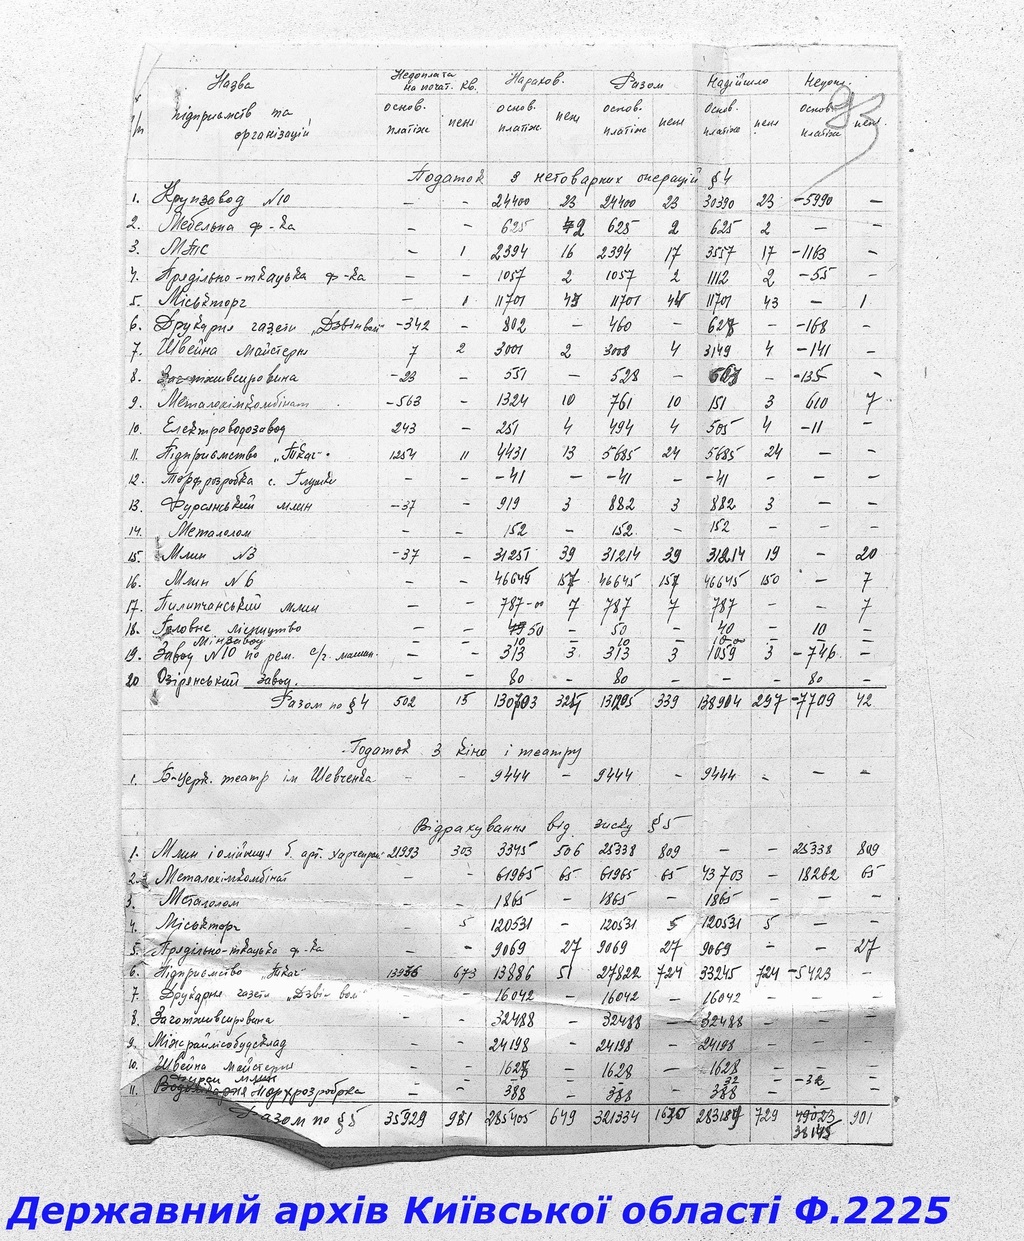 Назва Недоплата на почат. кв. Нарахов. Разом Надійшло Недопл.
підприємств та організацій основ. платіж пеня основ. платіж пеня основ. платіж пеня основ. платіж пеня основ. платіж пеня
93
Податок з нетоварних операцій §4
1. Крупзавод №10 – – 24400 23 24400 23 30390 23 -5990 –
2. Мебельна ф-ка – – 625 2 625 2 625 2 – –
3. МТС – 1 2394 16 2394 17 3557 17 -1163 –
4. Прядільно-ткацька ф-ка – – 1057 2 1057 2 1112 2 -55 –
5. Міськторг – 1 11701 11701 11701 43 – 1
6. Друкарня газети -342 – 802 – 460 – -168 –
7. Швейна майстерня 7 2 3001 2 3008 4 3149 4 -141 –
8. Заготживсировина -23 – 551 – 528 – – -135 –
9. Металохімкомбінат -563 – 1324 10 761 10 151 3 610 7
10. Електроводозавод 243 – 251 4 494 4 505 4 -11 –
11. Підприємство „Ткач" 1254 11 4431 13 5685 24 5685 24 – –
12. Торфрозробка с. Глушки – – -41 – -41 – -41 – – –
13. Фурсянський млин -37 – 919 3 882 3 882 3 – –
14. Металолом – – 152 – 152 – 152 – – –
15. Млин №3 -37 – 31251 39 31214 39 31214 19 – 20
16. Млин №6 – – 46645 157 46645 157 46645 150 – 7
17. Пилипчанський млин – – 787-00 7 787 7 787 – – 7
18. Головне лісництво – – 50 – 50 – 40 – 10 –
Мінзавод 10 10 10-00
19. Завод №10 по рем. с/г. машин – – 313 3 313 3 1059 3 -746 –
20 Озірянський завод. – – 80 – 80 – – – 80 –
Разом по §4 502 15 339 138904 297 -7709 42
Податок з кіно і театру
1. Б-Церк. театр ім Шевченка – – 9444 – 9444 – 9444 – – –
Відрахування від зиску §5
1. Млин і олійниця б. арт. 21993 303 3345 506 25338 809 – – 25338 809
2. Металохімкомбінат – – 61965 65 61965 65 43703 – 18262 65
3. Металолом – – 1865 – 1865 – 1865 – – –
4. Міськторг – 5 120531 – 120531 5 120531 5 – –
5. Прядільно-ткацька ф-ка – – 9069 27 9069 27 9069 – – 27
6. Підприємство „Ткач" 673 13886 51 27822 724 33245 724 -5423 –
7. Друкарня газети – – 16042 – 16042 – 16042 – – –
8. Заготживсировина – – 32488 – 32488 – 32488 – – –
9. Міжрайлісобудсклад – – 24198 – 24198 – 24198 – – –
10. Швейна майстерня – – 1628 – 1628 – 1628 – – –
млин – – 32 – -32 –
11. Торфрозробка – – 388 – 388 – 388 – – –
Разом по §5 35929 981 285405 649 321334 729 49023 901
38145
Державний архів Київської області Ф.2225